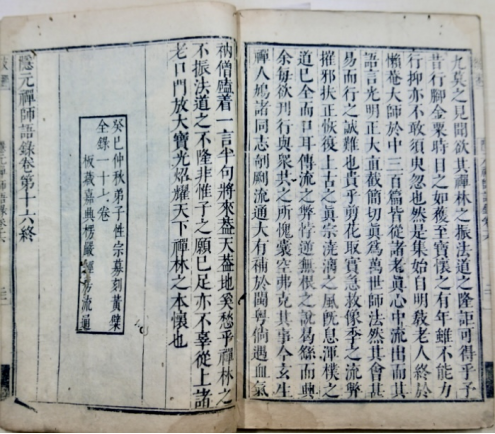 九葉之見聞欲其禪林之振法道之隆詎可得乎予
昔行腳時日之如獲至寶懷之有年雖不能方
行抑亦不敢須臾忽也然是集始自明教老人終於
懶菴大師於中三百篇皆從諸老真心中流出而其
語言光明正大直截簡切真為萬世師法然其會甚
易而行之誠難也貴乎剪花取實急救像季之流弊
摧邪扶正恢復上古之真宗澆漓之風既息渾樸之
道已全而口耳傳流之弊悖逆無根之說曷繇而興
余每欲刊行與眾共之所愧囊空弗克其事今玄生
禪人鳩諸同志剞劂流通大有補於閩粵倘遇血氣
衲僧着一言半句將來葢天葢地奚愁乎禪林之
不振法道之不隆非惟予之願已足亦不辜從上諸
老口門放大寶光焰耀天下禪林之本懷也
癸巳仲秋弟子性宗募刻黃檗
全錄一十六卷
板藏嘉興楞嚴經坊流通
隱元禪師語錄卷第十六終